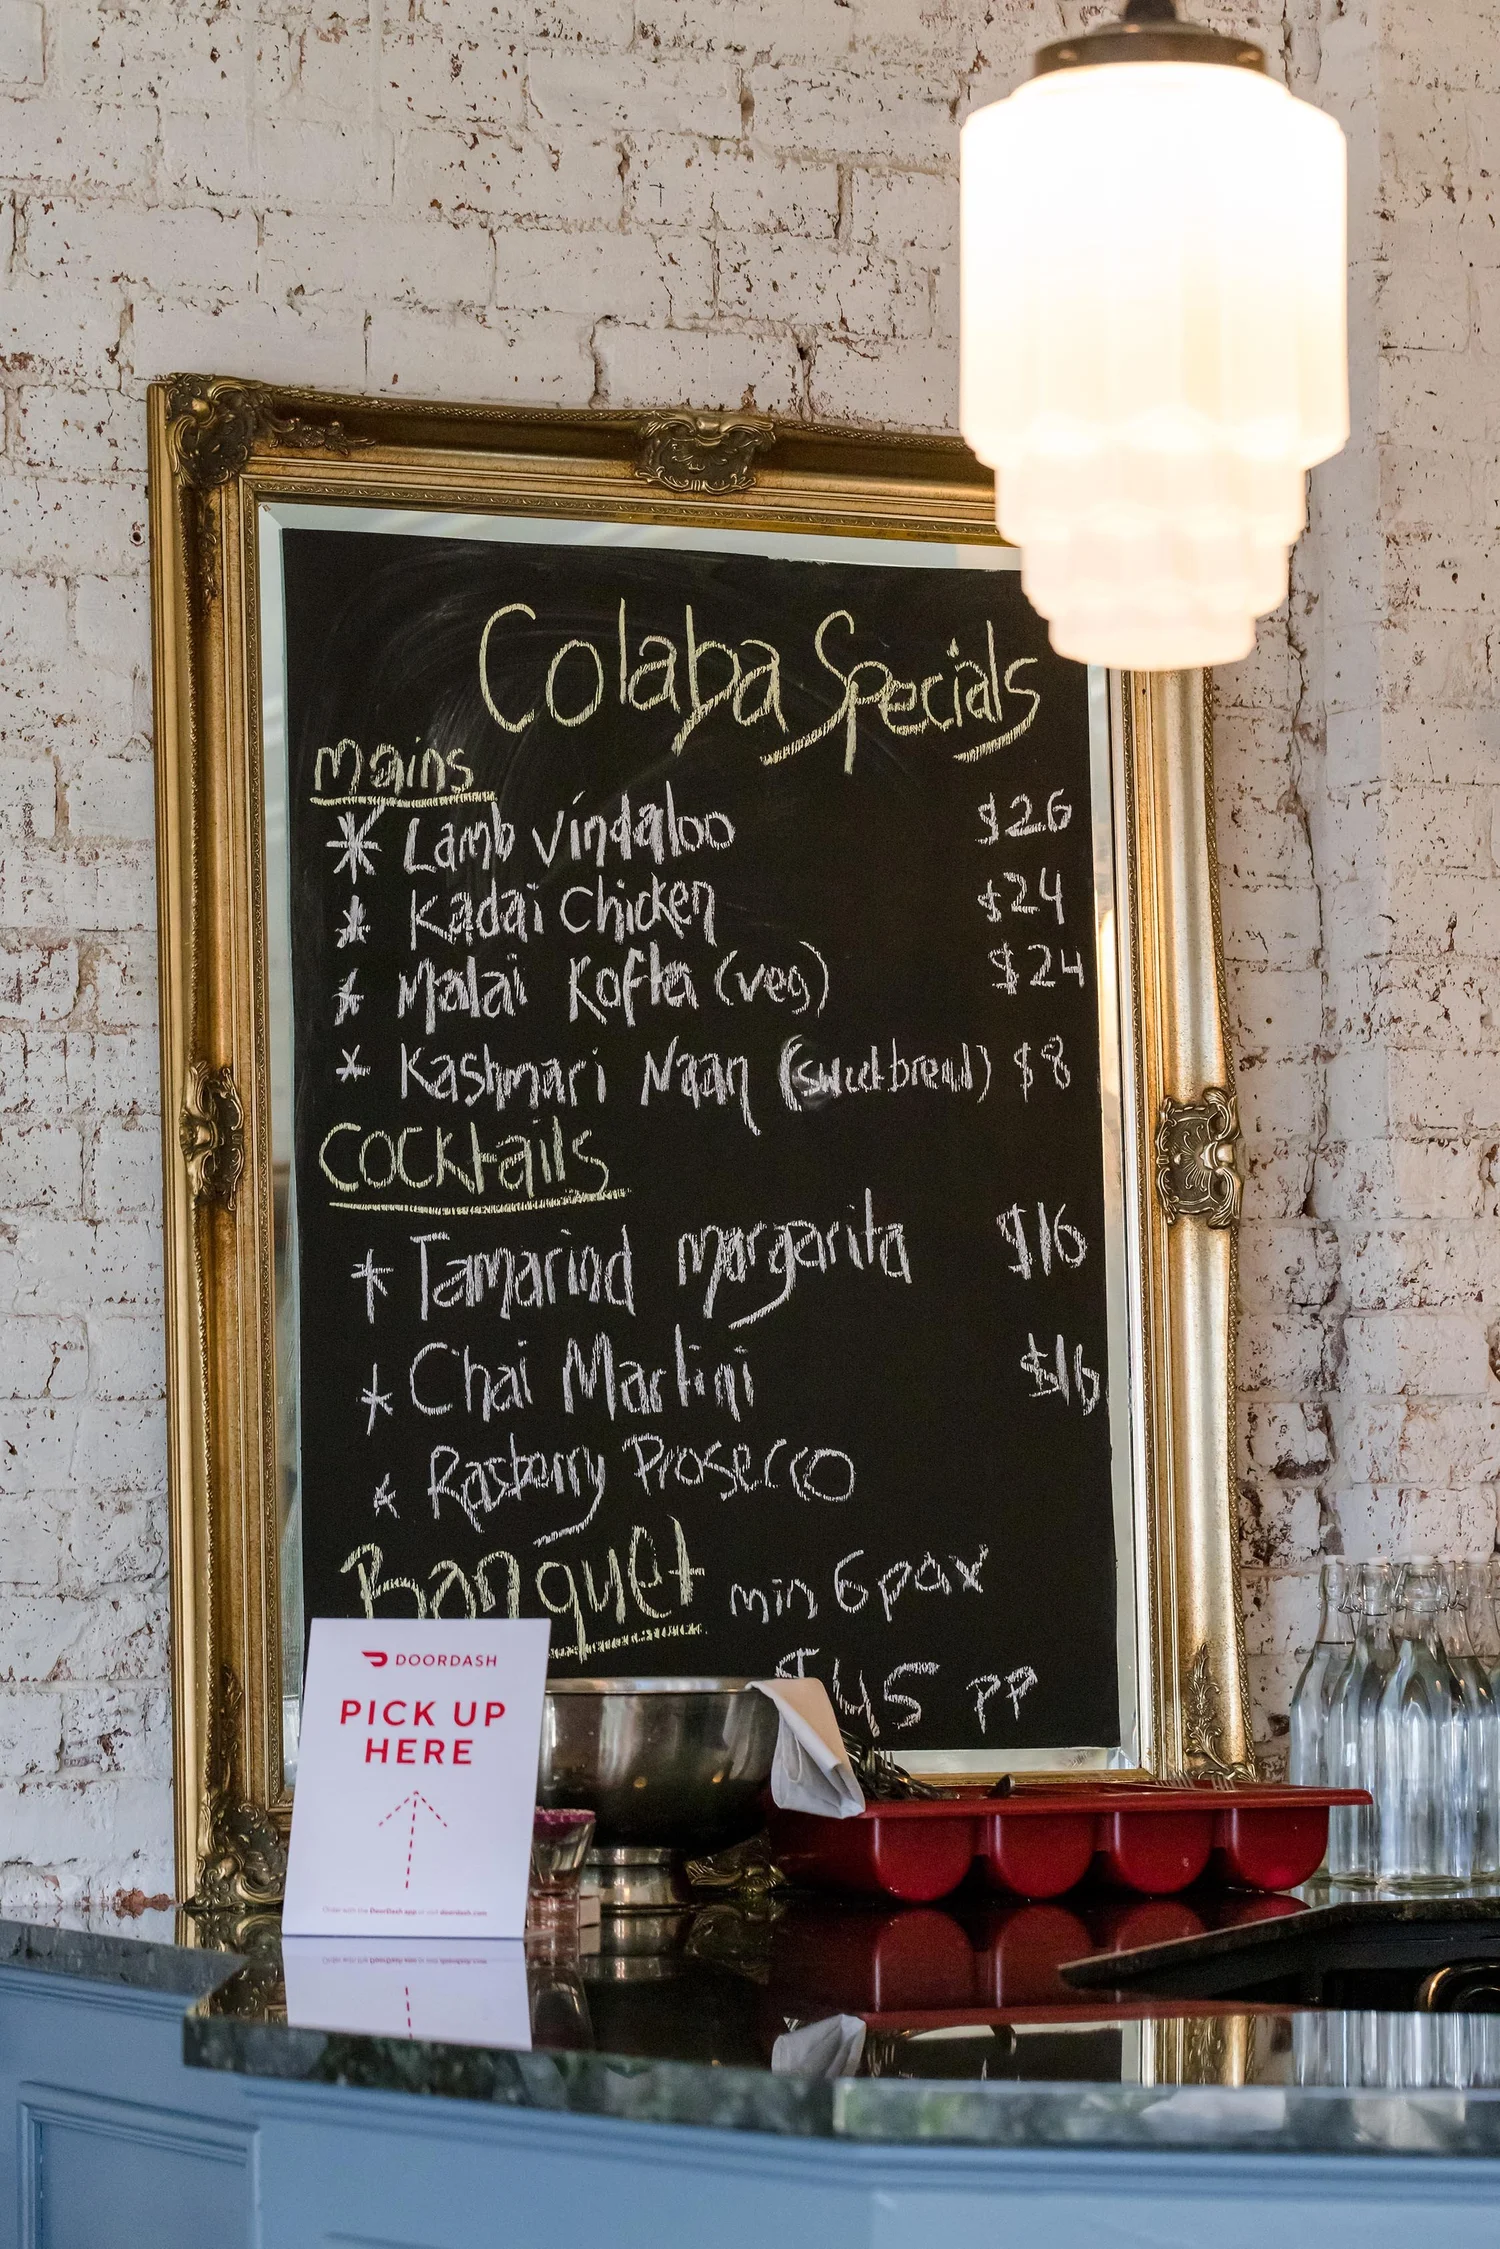 Colaba Specials
mains
* Lamb vindaloo $26
* Kadai Chicken $24
* Malai Kofta (veg) $24
* Kashmari Naan (sweetbread) $8
Cocktails
* Tamarind margarita $16
* Chai Martini $16
* Rasberry Prosecco
Banquet min 6 pax
$45 pp
DOORDASH
PICK UP
HERE
Order with the DoorDash app or visit doordash.com